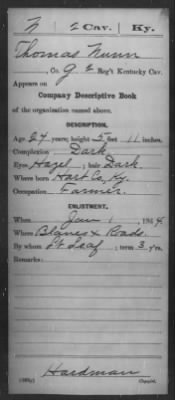 N 2 Cav. Ky.
Thomas Nunn
, Co. G 2 Reg't Kentucky Cav.
Appears on
Company Descriptive Book
of the organization named above.
DESCRIPTION.
Age 24 years; height 5 feet 11 inches.
Complexion Dark
Eyes Hazel ; hair Dark.
Where born Hart Co, Ky.
Occupation Farmer.
ENLISTMENT.
When Jan 1 , 1864.
Where Blanes X Roads.
By whom Lt Leaf ; term 3 y'rs.
Remarks:
Hardman
Copyist.